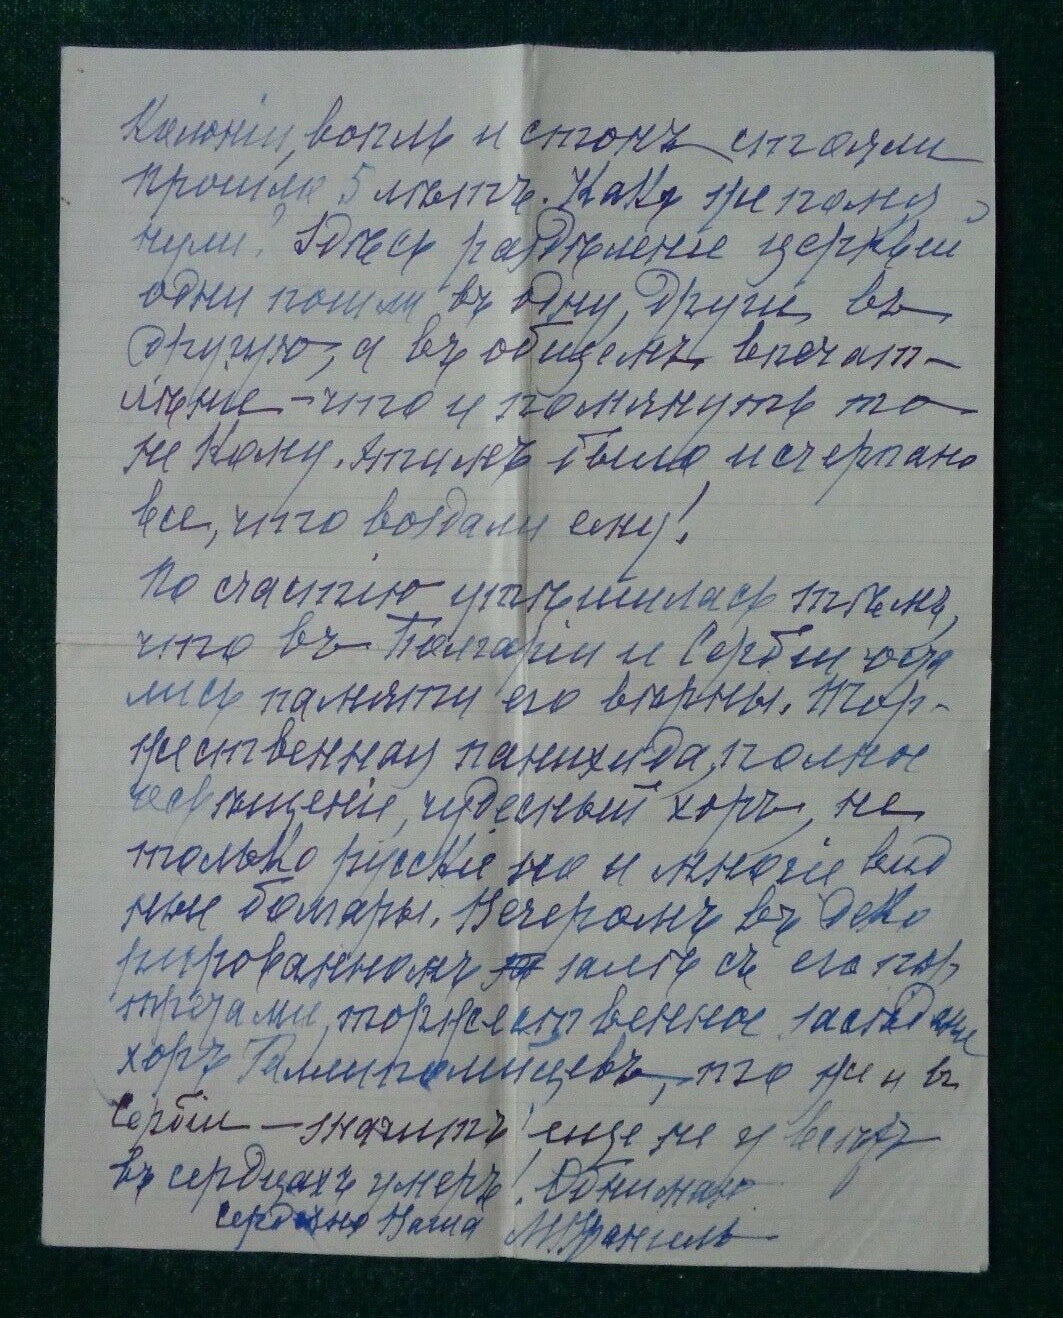 Колоніи, вопль и стонъ стояли
прошло 5 лѣтъ. Какъ же помя
нули? Здѣсь раздѣленіе церквей
одни пошли въ одну, другіе въ
другую, а въ общемъ впечат-
лѣніе – что и помянуть то
не кому. Этимъ было исчерпано
все, что воздали ему!
По счастію утѣшилась тѣмъ,
что въ Болгаріи и Сербіи оста
лись памяти его вѣрны. Тор-
жественная панихида, полное
освѣщеніе, чудесный хоръ, не
только русскіе но и многіе вид
ные болгары. Вечеромъ въ деко
рированномъ залѣ съ его пор
третами, торжественное засѣданіе
хоръ Галлиполійцевъ, то же и въ
Сербіи – значитъ еще не у всѣхъ
въ сердцахъ умеръ! Обнимаю
сердечно Ваша М. Врангель